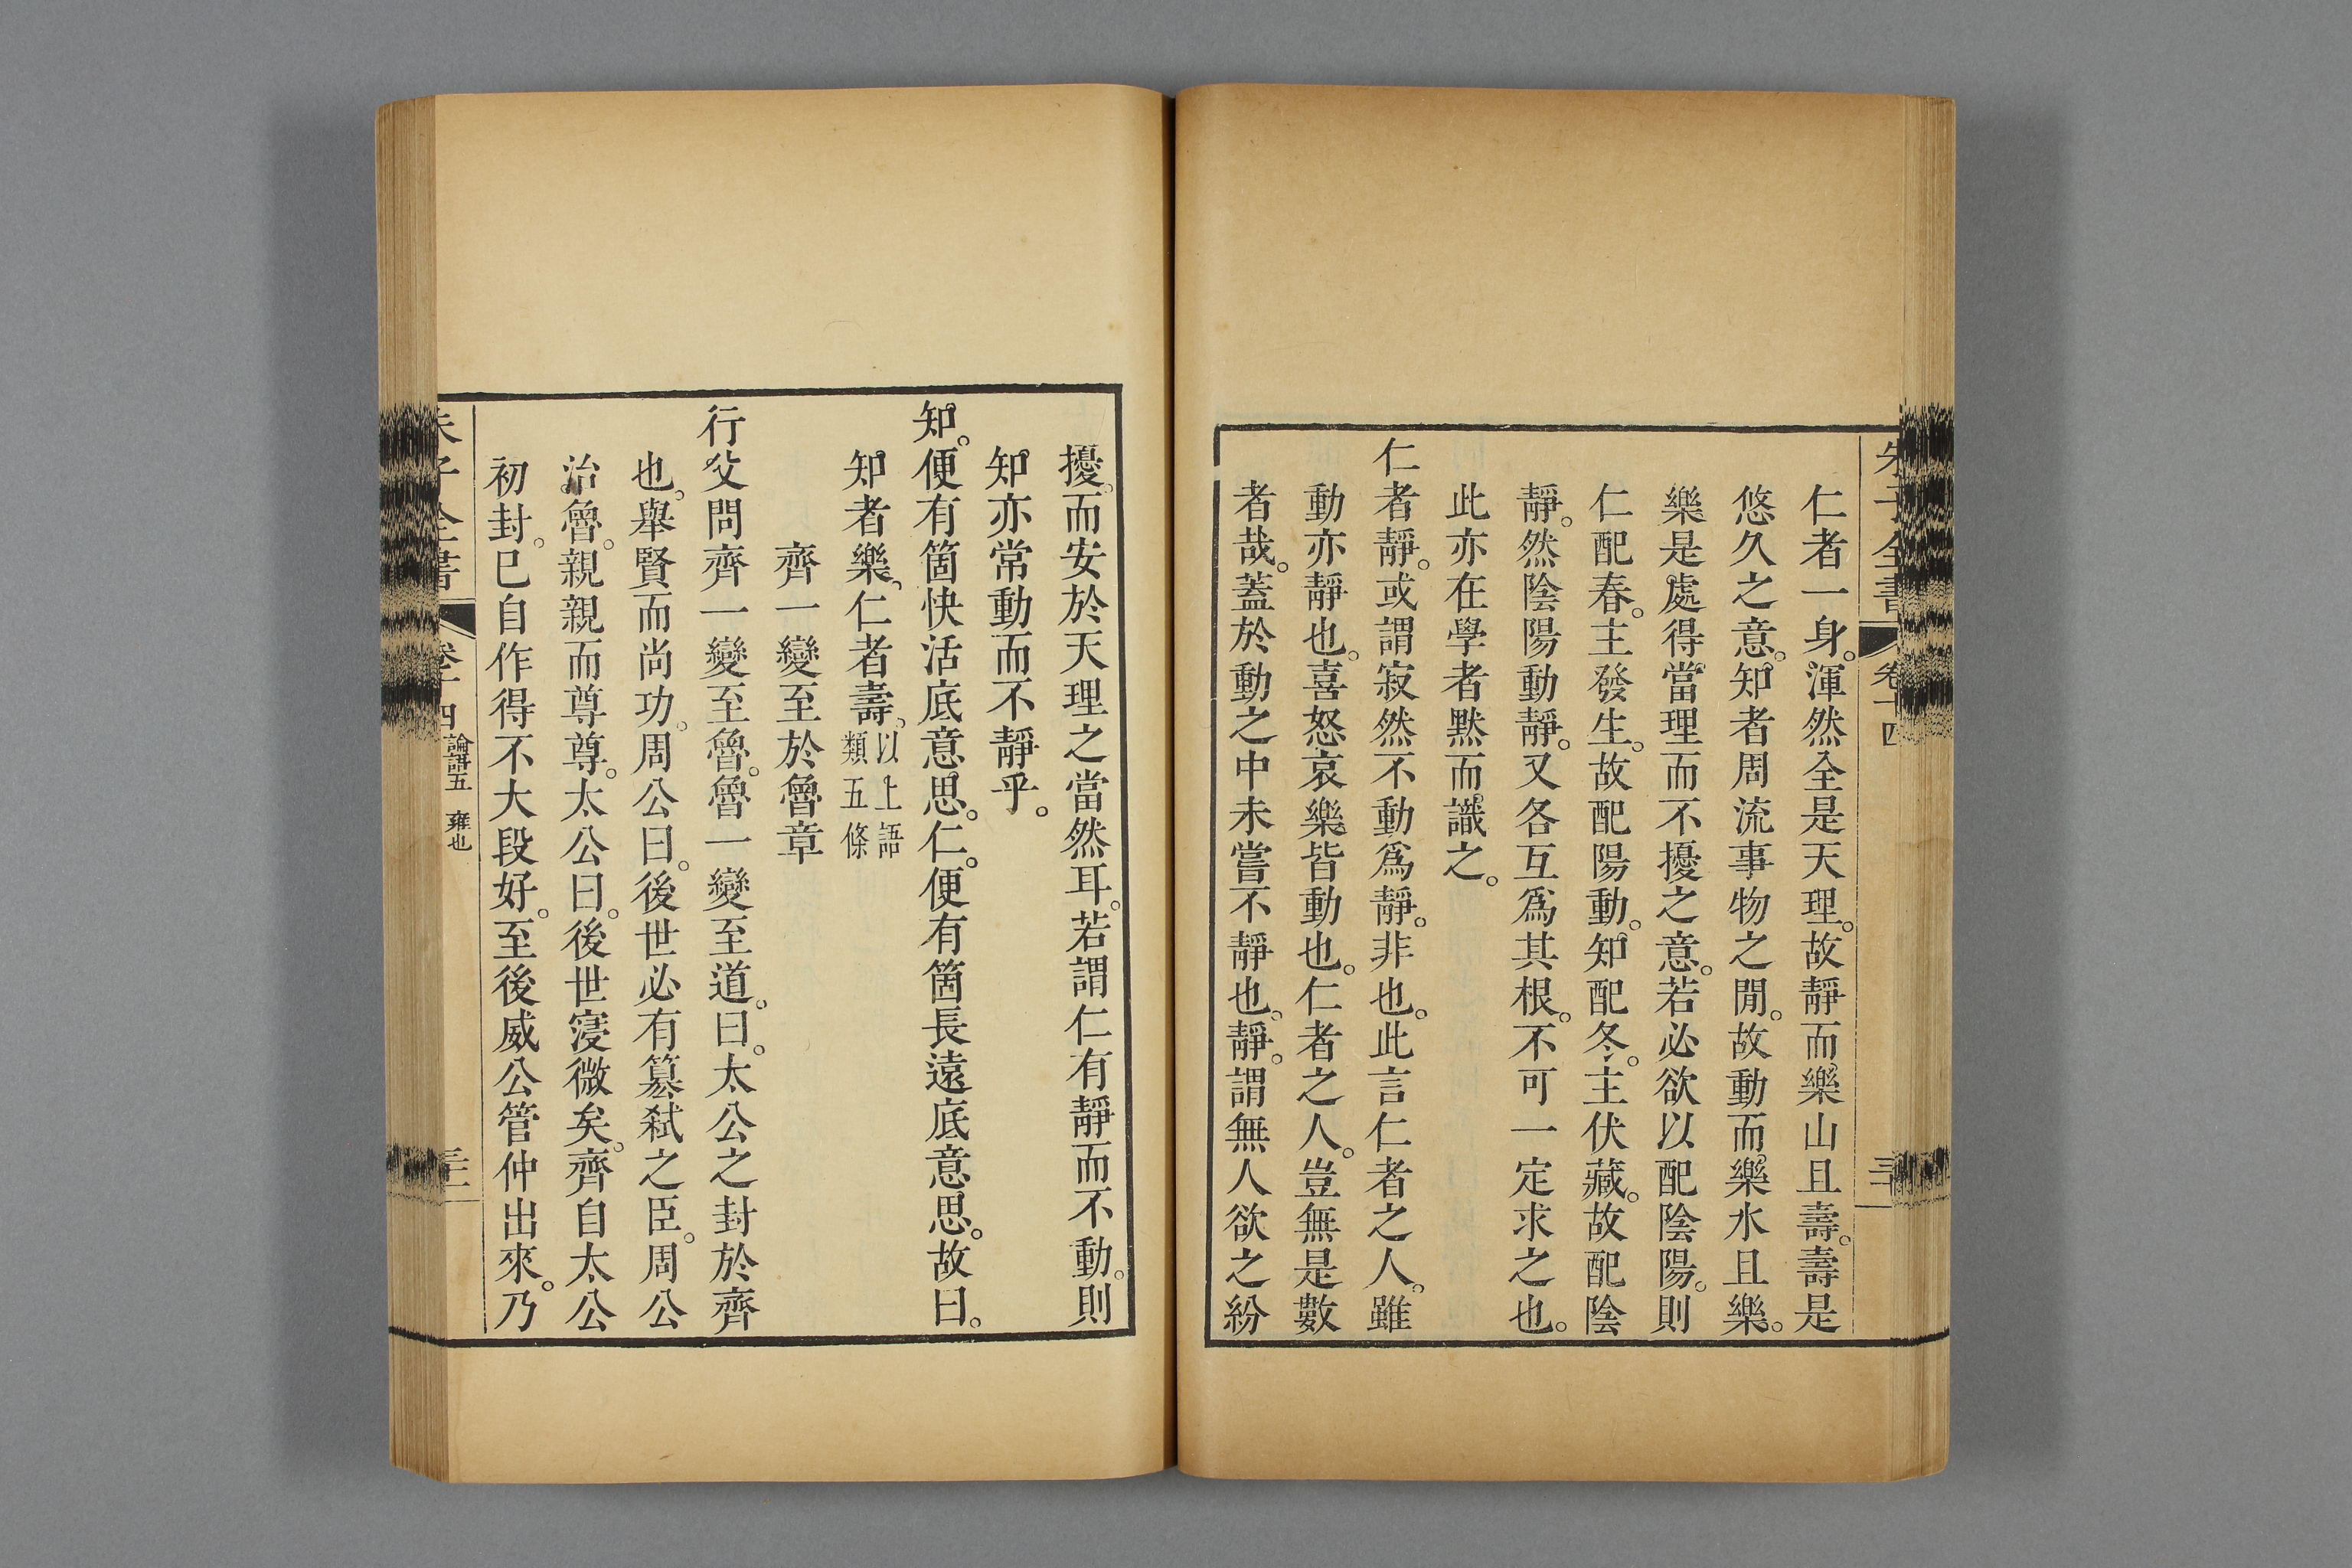 朱子全書 卷十四 三十
仁者一身。渾然全是天理。故靜而樂山且壽。壽是
悠久之意。知者周流事物之閒。故動而樂水且樂。
樂是處得當理而不擾之意。若必欲以配陰陽。則
仁配春。主發生。故配陽動。知配冬。主伏藏。故配陰
靜。然陰陽動靜。又各互爲其根。不可一定求之也。
此亦在學者默而識之。
仁者靜。或謂寂然不動爲靜。非也。此言仁者之人。雖
動亦靜也。喜怒哀樂皆動也。仁者之人。豈無是數
者哉。蓋於動之中未嘗不靜也。靜。謂無人欲之紛
擾。而安於天理之當然耳。若謂仁有靜而不動。則
知亦常動而不靜乎。
知。便有箇快活底意思。仁。便有箇長遠底意思。故曰。
知者樂。仁者壽。以上語類五條
齊一變至於魯章
行父問齊一變至魯。魯一變至道。曰。太公之封於齊
也。舉賢而尚功。周公曰。後世必有簒弑之臣。周公
治魯。親親而尊尊。太公曰。後世寖微矣。齊自太公
初封。已自作得不大段好。至後威公管仲出來。乃
朱子全書 卷十四 論語五 雍也 三十一